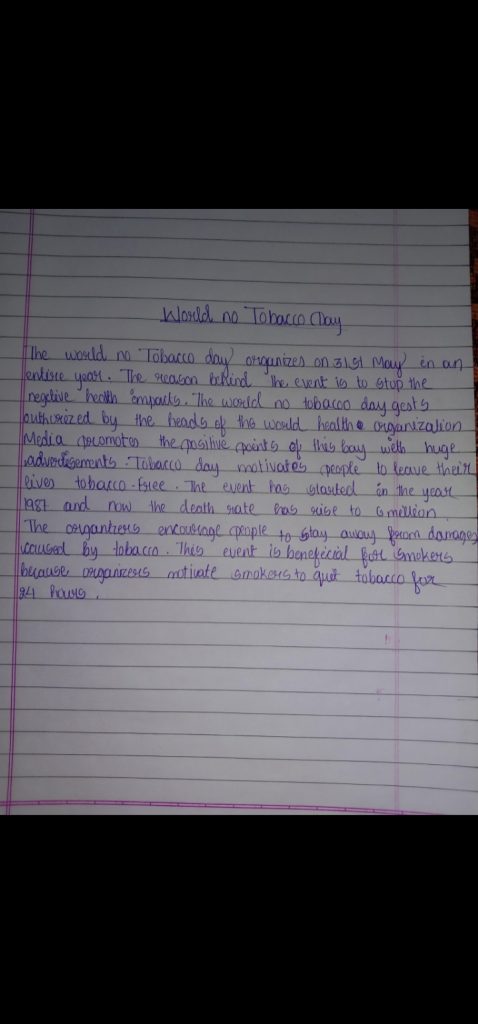 World no Tobacco Day
The world no Tobacco day organizes on 31st May in an
entire year. The reason behind the event is to stop the
negitive health impacts. The world no tobacco day gests
authorized by the heads of the world health organization
Media promotes the positive points of this bay with huge
advertisements. Tobacco day motivates people to leave their
lives tobacco-free. The event has started in the year
1987 and now the death rate has rise to 6 million.
The organizers encourage people to stay away from damages
caused by tobacco. This event is beneficial for smokers
because organizers motivate smokers to quit tobacco for
24 hours.